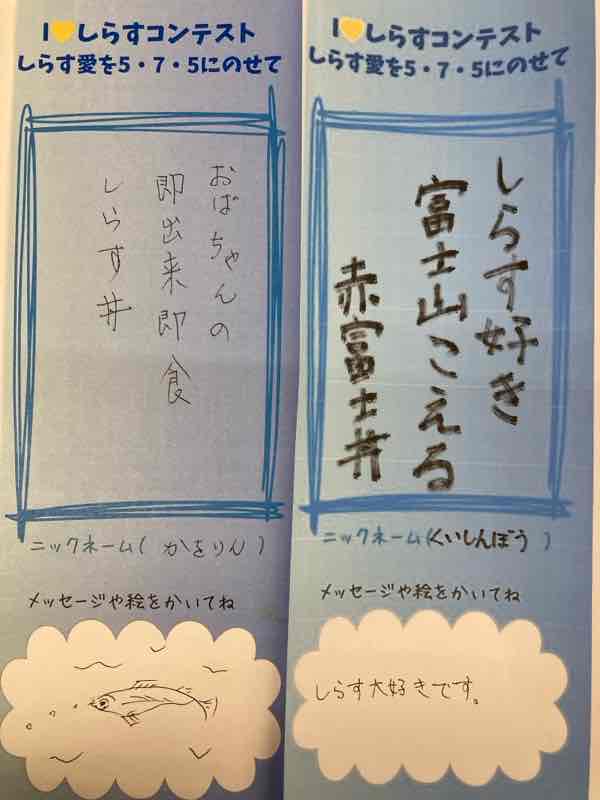 I💛しらすコンテスト
しらす愛を5・7・5にのせて
おばちゃんの
即出来即食
しらす丼
ニックネーム( かをりん )
メッセージや絵をかいてね
I💛しらすコンテスト
しらす愛を5・7・5にのせて
しらす好き
富士山こえる
赤富士丼
ニックネーム(くいしんぼう )
メッセージや絵をかいてね
しらす大好きです。